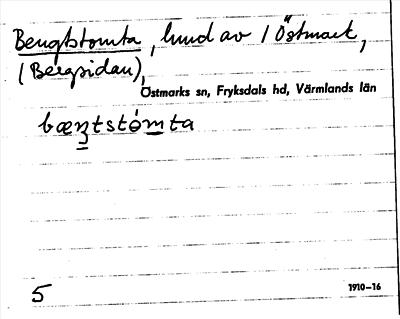 Bengtstomta, lund av 1 Östmark,
(Bergsidan),
Östmarks sn, Fryksdals hd, Värmlands län
bæŋtstómta
5 1910–16